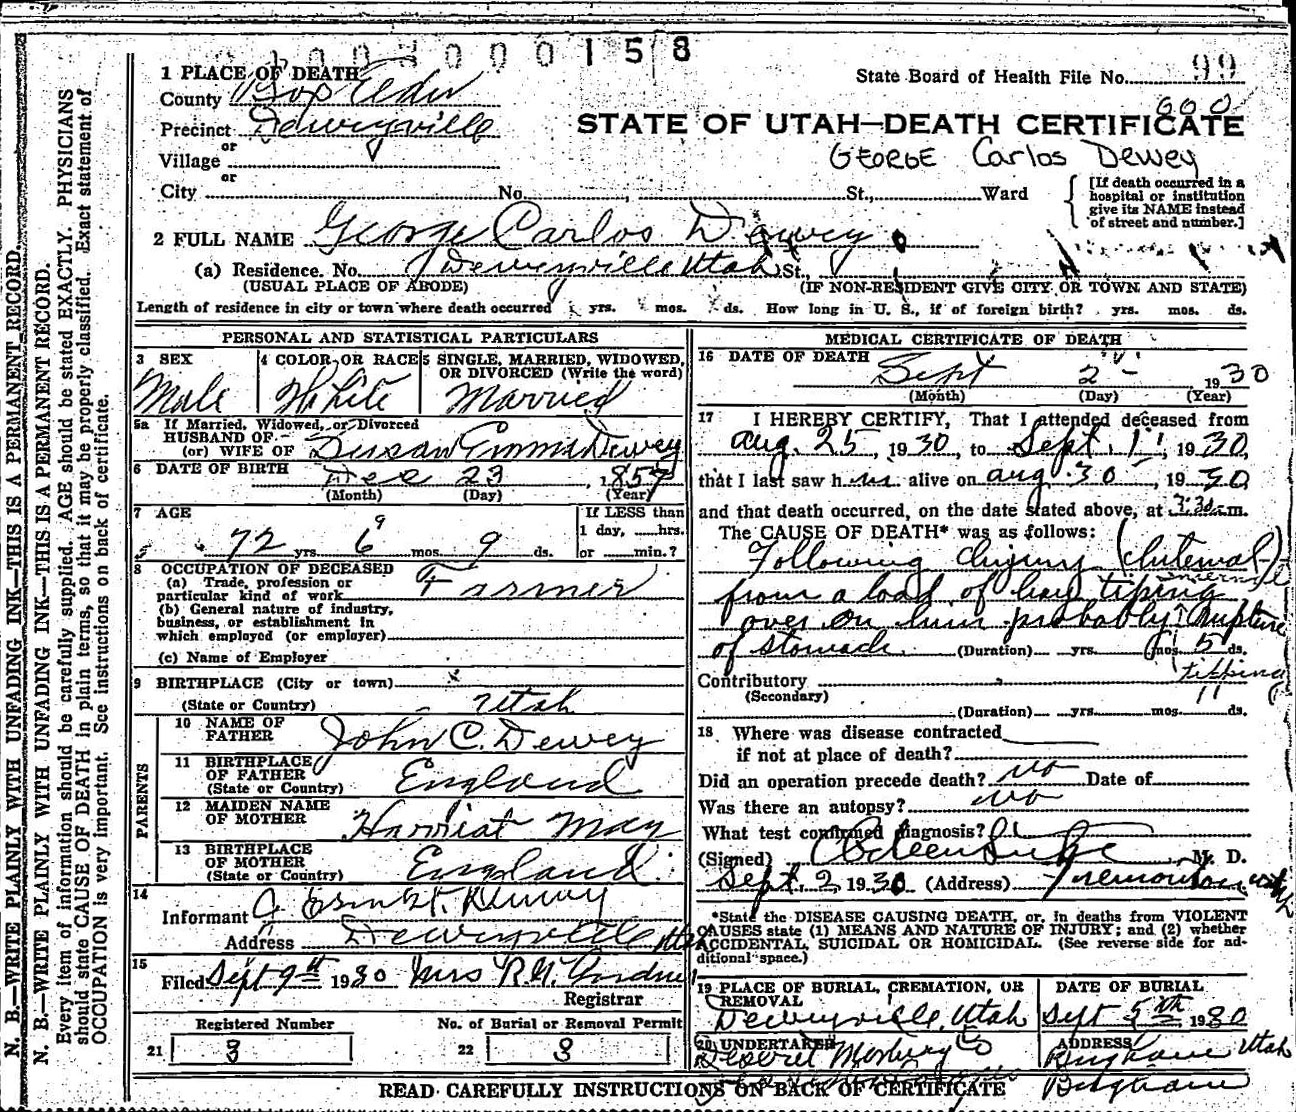 1 0 0 3 0 0 0 1 5 8
1 PLACE OF DEATH
State Board of Health File No. 99
County Box Elder
Precinct Deweyville
STATE OF UTAH—DEATH CERTIFICATE
or
Village
GEORGE Carlos Dewey
or
City No. St., Ward
[If death occurred in a
hospital or institution
give its NAME instead
of street and number.]
2 FULL NAME George Carlos Dewey
(a) Residence. No. Deweyville Utah St.,
(USUAL PLACE OF ABODE) (IF NON-RESIDENT GIVE CITY OR TOWN AND STATE)
Length of residence in city or town where death occurred yrs. mos. ds. How long in U. S., if of foreign birth? yrs. mos. ds.
PERSONAL AND STATISTICAL PARTICULARS
3 SEX 4 COLOR OR RACE 5 SINGLE, MARRIED, WIDOWED,
OR DIVORCED (Write the word)
Male White Married
5a If Married, Widowed, or Divorced
HUSBAND OF
(or) WIFE OF Susan Emma Dewey
6 DATE OF BIRTH Dec 23, 1857
(Month) (Day) (Year)
7 AGE If LESS than
1 day, hrs.
9
72 yrs. 6 mos. 9 ds. or min.?
8 OCCUPATION OF DECEASED
(a) Trade, profession or
particular kind of work Farmer
(b) General nature of industry,
business, or establishment in
which employed (or employer)
(c) Name of Employer
9 BIRTHPLACE (City or town)
(State or Country) Utah
PARENTS
10 NAME OF
FATHER John C. Dewey
11 BIRTHPLACE
OF FATHER
(State or Country) England
12 MAIDEN NAME
OF MOTHER Harriat May
13 BIRTHPLACE
OF MOTHER
(State or Country) England
14
Informant Dewey
Address Deweyville Utah
15
Filed Sept 9th 1930 Mrs R.N.
Registrar
Registered Number No. of Burial or Removal Permit
21 3 22 3
MEDICAL CERTIFICATE OF DEATH
16 DATE OF DEATH
Sept 2 1930
(Month) (Day) (Year)
17 I HEREBY CERTIFY, That I attended deceased from
Aug. 25, 1930, to Sept. 1, 1930,
that I last saw him alive on Aug. 30, 1930
and that death occurred, on the date stated above, at 3:30 m.
The CAUSE OF DEATH* was as follows:
Following Injury (Internal)
from a load of hay tiping
over on him probably Rupture
of Stomach (Duration) yrs. mos. 5 ds.
tipping
Contributory
(Secondary)
(Duration) yrs. mos. ds.
18 Where was disease contracted
if not at place of death?
Did an operation precede death? no Date of
Was there an autopsy? no
What test confirmed diagnosis?
(Signed) M. D.
Sept. 2 1930 (Address) Tremonton Utah
*State the DISEASE CAUSING DEATH, or, in deaths from VIOLENT
CAUSES state (1) MEANS AND NATURE OF INJURY; and (2) whether
ACCIDENTAL, SUICIDAL OR HOMICIDAL. (See reverse side for ad-
ditional space.)
19 PLACE OF BURIAL, CREMATION, OR
REMOVAL
Deweyville, Utah
DATE OF BURIAL
Sept 5th 1930
20 UNDERTAKER
Deseret Mortuary Co
ADDRESS
Bingham Utah
Bingham
READ CAREFULLY INSTRUCTIONS ON BACK OF CERTIFICATE
N. B.—WRITE PLAINLY WITH UNFADING INK—THIS IS A PERMANENT RECORD.
N. B.—WRITE PLAINLY WITH UNFADING INK—THIS IS A PERMANENT RECORD.
Every item of information should be carefully supplied. AGE should be stated EXACTLY. PHYSICIANS
should state CAUSE OF DEATH in plain terms, so that it may be properly classified. Exact statement of
OCCUPATION is very important. See instructions on back of certificate.